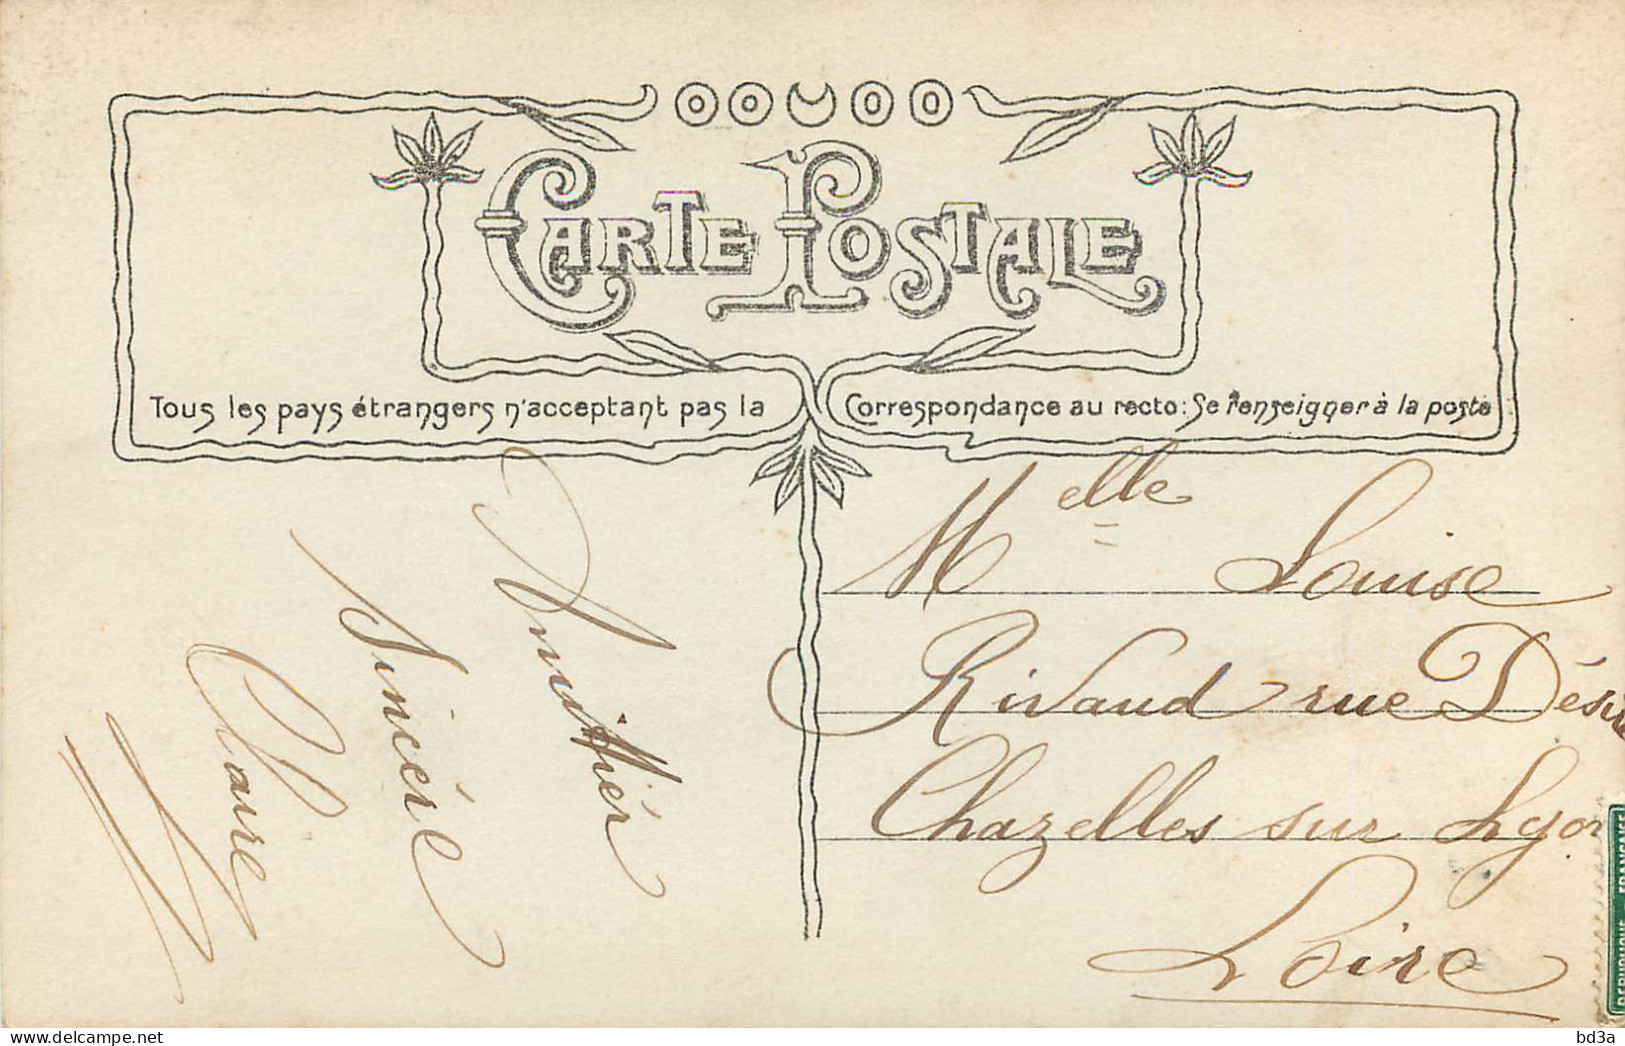 CARTE POSTALE
Tous les pays étrangers n'acceptant pas la Correspondance au recto: Se renseigner à la poste
Amitiér
Sincère
Claire
Melle Louise
Rivaud rue Désiré
Chazelles sur Lyon
Loire
REPUBLIQUE FRANÇAISE
delcampe.net
bd3a